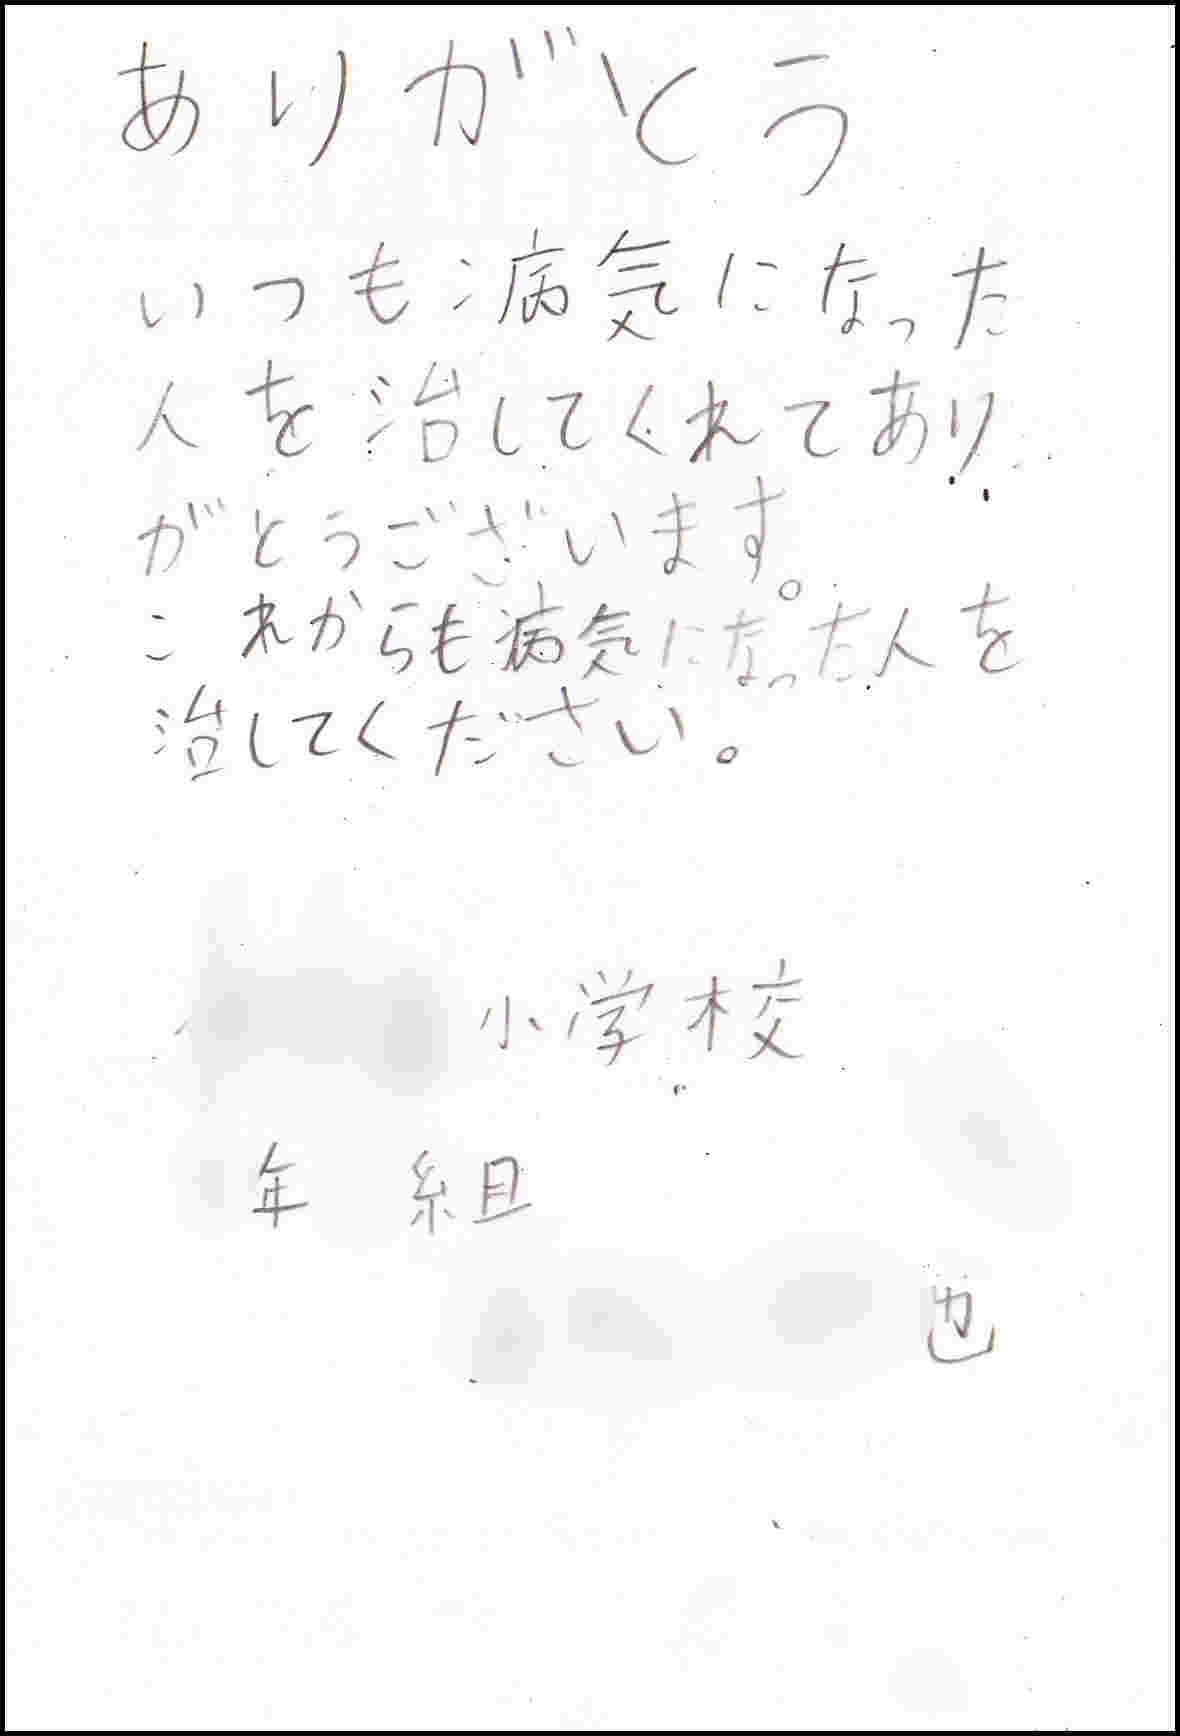 ありがとう
いつも病気になった
人を治してくれてあり
がとうございます。
これからも病気になった人を
治してください。
小学校
年 組
也